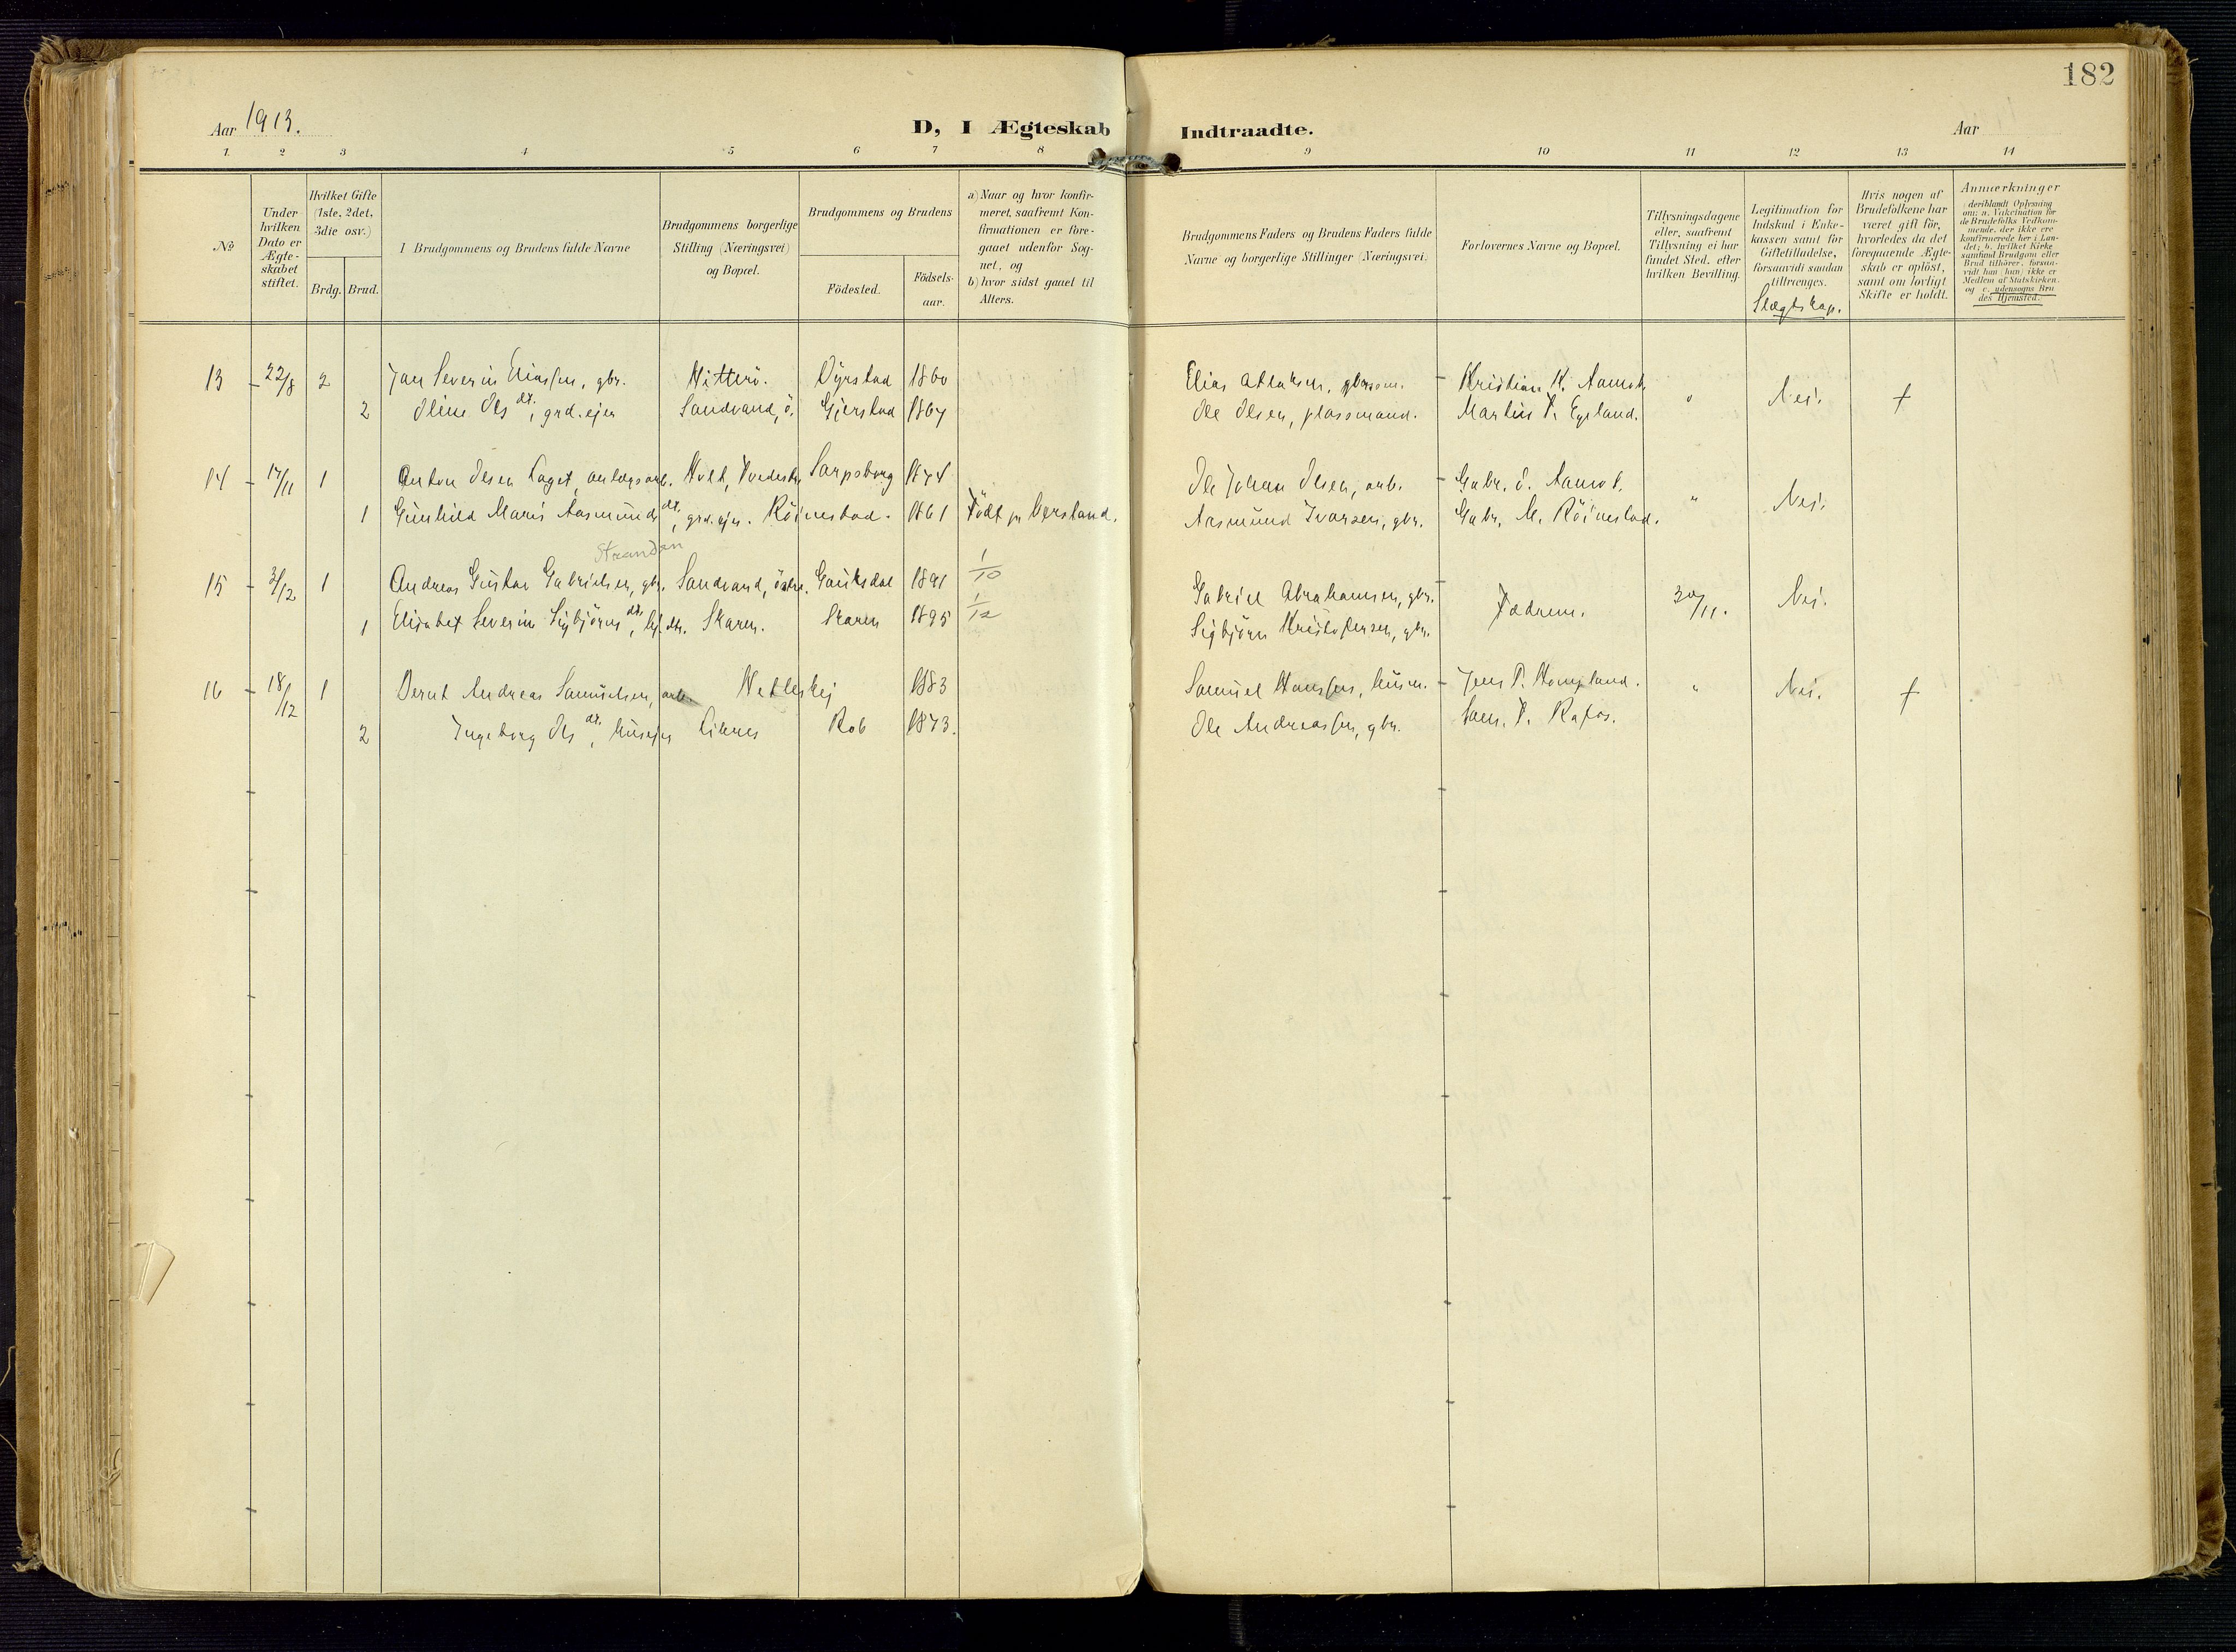 182
Aar 1913.
D, I Ægteskab Indtraadte.
Aar
1 2 3 4 5 6 7 8 9 10 11 12 13 14
No
Under hvilken Dato er Ægte- skabet stiftet.
Hvilket Gifte (1ste, 2det, 3die osv.)
Brdg. Brud.
I Brudgommens og Brudens fulde Navne
Brudgommens borgerlige Stilling (Næringsvei) og Bopæl.
Brudgommens og Brudens
Fødested.
Fødsels- aar.
a) Naar og hvor konfir- meret, saafremt Kon- firmationen er fore- gaaet udenfor Sog- net, og
b) hvor sidst gaaet til Alters.
Brudgommens Faders og Brudens Faders fulde Navne og borgerlige Stillinger (Næringsvei).
Forlovernes Navne og Bopæl.
Tillysningsdagene eller, saafremt Tillysning ei har fundet Sted, efter hvilken Bevilling.
Legitimation for Indskud i Enke- kassen samt for Giftetilladelse, forsaavidt saadan tiltrænges.
Slægtskap.
Hvis nogen af Brudefolkene har været gift før, hvorledes da det foregaaende Ægte- skab er opløst, samt om lovligt Skifte er holdt.
Anmerkninger (deriblandt Oplysning om: a. Vakcination for de Brudefolks Vedkom- mende, der ikke ere konfirmerede her i Lan- det; b. hvilket Kirke- samfund Brudgom eller Brud tilhører, forsaa- vidt han (hun) ikke er Medlem af Statskirken. og c. udensogns Bru des Hjemsted.
13 22/8 2 Jan Severin Eliassen, gbr. Hitterö. Dyrstad 1860 Elias gbr Kristian K. Aamot
2 Oline Olsdt., grd.ejer Sandvand, ö. Gjerstad 1867 Ole Olsen, plassmand. Martin T. Egeland. " Nei. †
14 17/11 1 Anton Olsen Laget, anlægsarb. Holt, Tvedestr. Sarpsborg 1874 Ole Johan Olsen, arb. Gabr. O. Aamot.
1 Gunhild Marie Aasmundsdt., grd.ejer. Röinestad. 1861 Födt p Versland. Aasmund Ivarsen, gbr. Gabr. M. Röinestad. " Nei.
Strandan
15 3/12 1 Andreas Gustav Gabrielsen, gbr. Sandvand, östre. Gauksdal 1891 1/10 Gabriel Abrahamsen, gbr. Fædrene. 30/11. Nei.
1 Elisabet Severine Sigbjörnsdt., hj.dtr. Skaren. Skaren 1895 1/12 Sigbjörn Kristofersen, gbr.
16 18/12 1 Bernt Andreas Samuelsen, arb. Hetleskej 1883 Samuel Hansen, husm. Jens P. Hompland. " Nei. †
2 Ingeborg Olsdt., husejer Liknes Rob 1873. Ole Andreassen, gbr. Sam. T. Rafos.